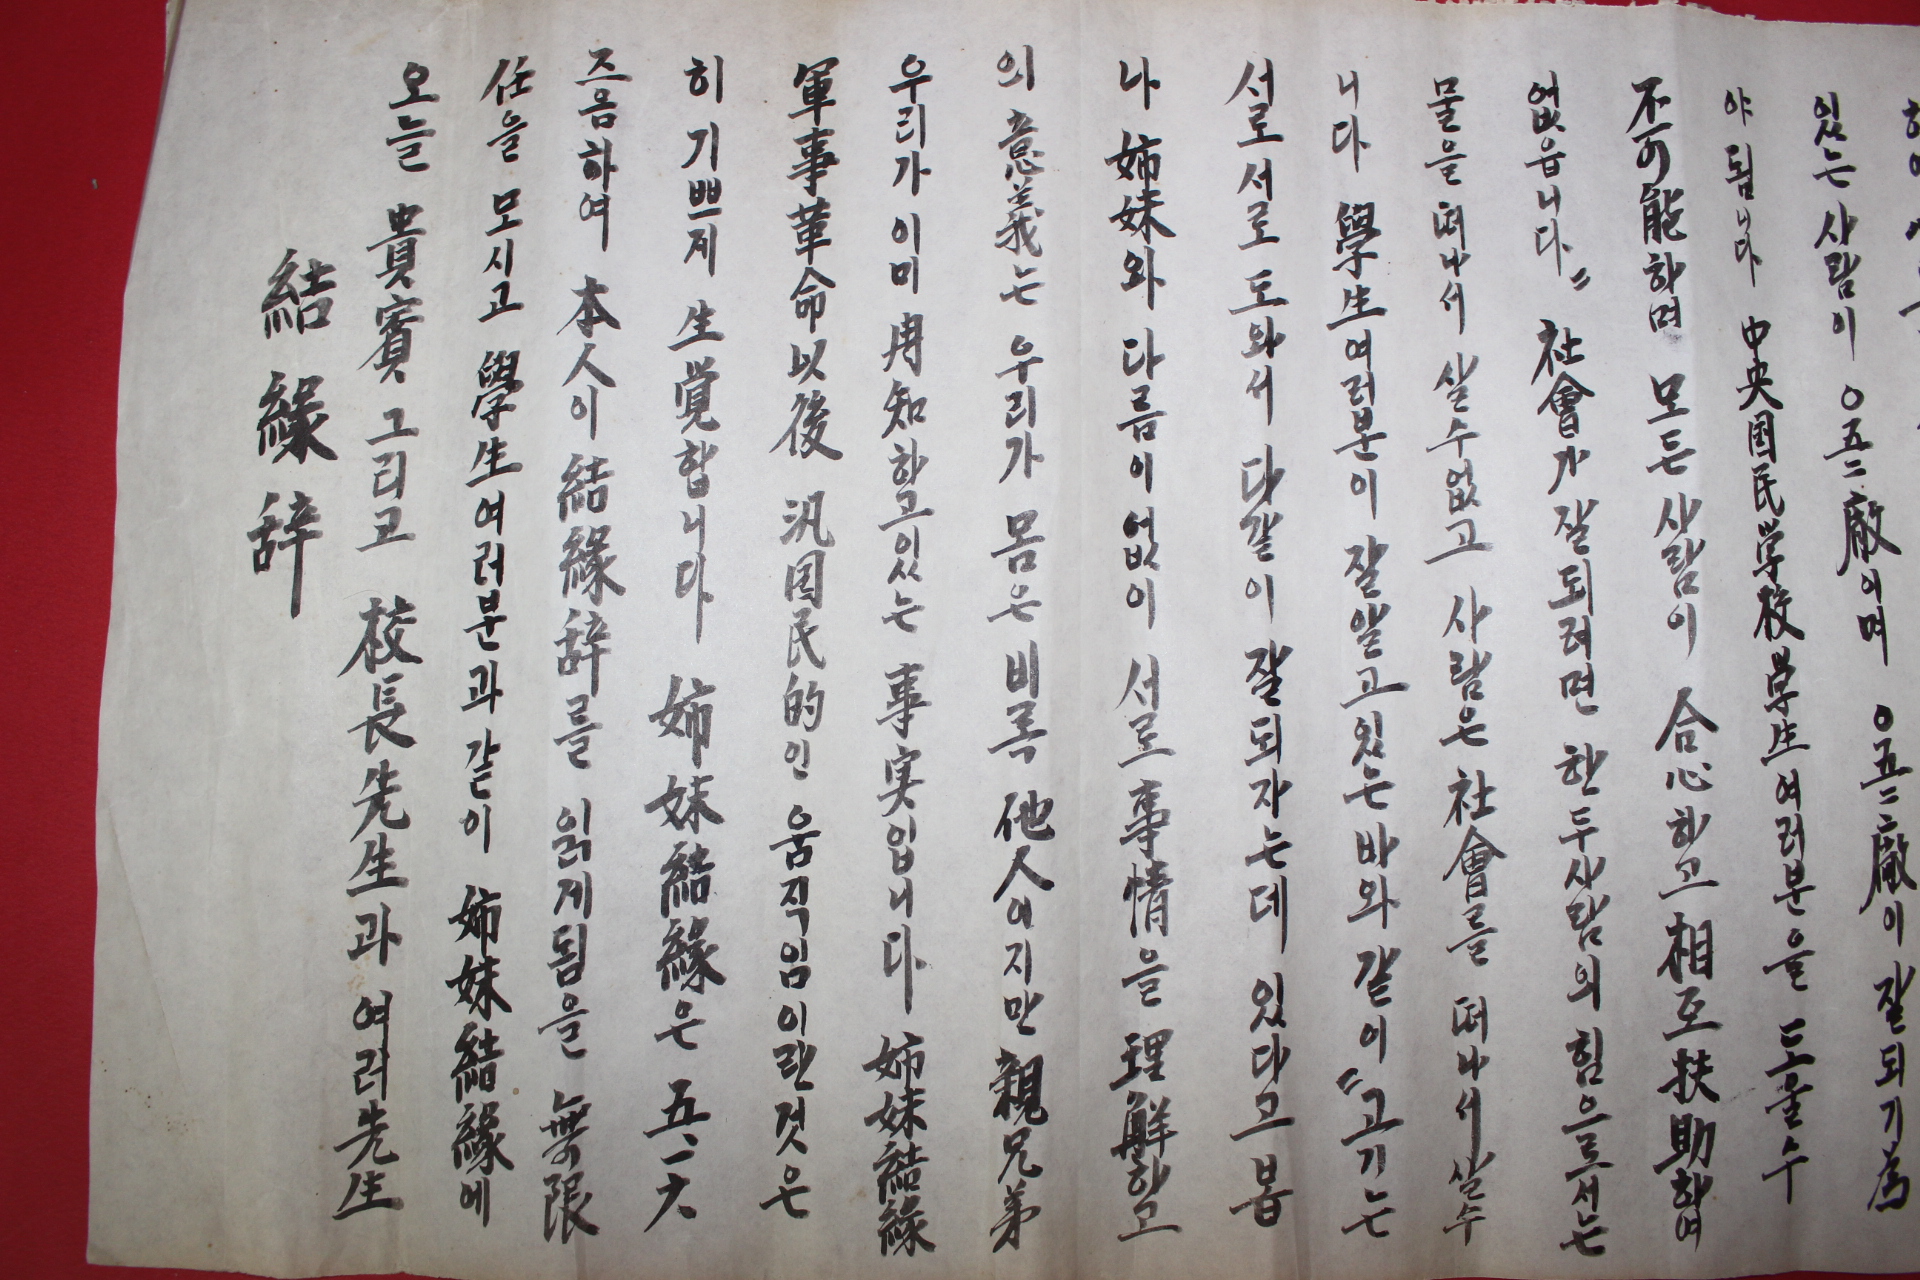 結緣辞
오늘 貴賓 그리고 校長先生과 여러先生
任을 모시고 學生여러분과 같이 姉妹結緣에
즈음하여 本人이 結緣辞를 읽게됨을 無限
히 기쁘게 生覚합니다 姉妹結緣은 五一六
軍事革命以後 汎国民的인 움직임이란것은
우리가 이미 周知하고있는 事実입니다 姉妹結緣
의 意義는 우리가 몸은 비록 他人이지만 親兄弟
나 姉妹와 다름이없이 서로 事情을 理解하고
서로서로 도와서 다같이 잘되자는데 있다고 봅
니다 學生여러분이 잘알고있는바와 같이 "고기는
물을 떠나서 살수없고 사람은 社會를 떠나서 살수
없읍니다" 社會가 잘되려면 한두사람의 힘으로서는
不可能하며 모든 사람이 合心하고 相互扶助하여
야 됩니다 中央国民学校学生여러분을 도울수
있는 사람이 ㅇ五二廠이며 ㅇ五二廠이 잘되기 為